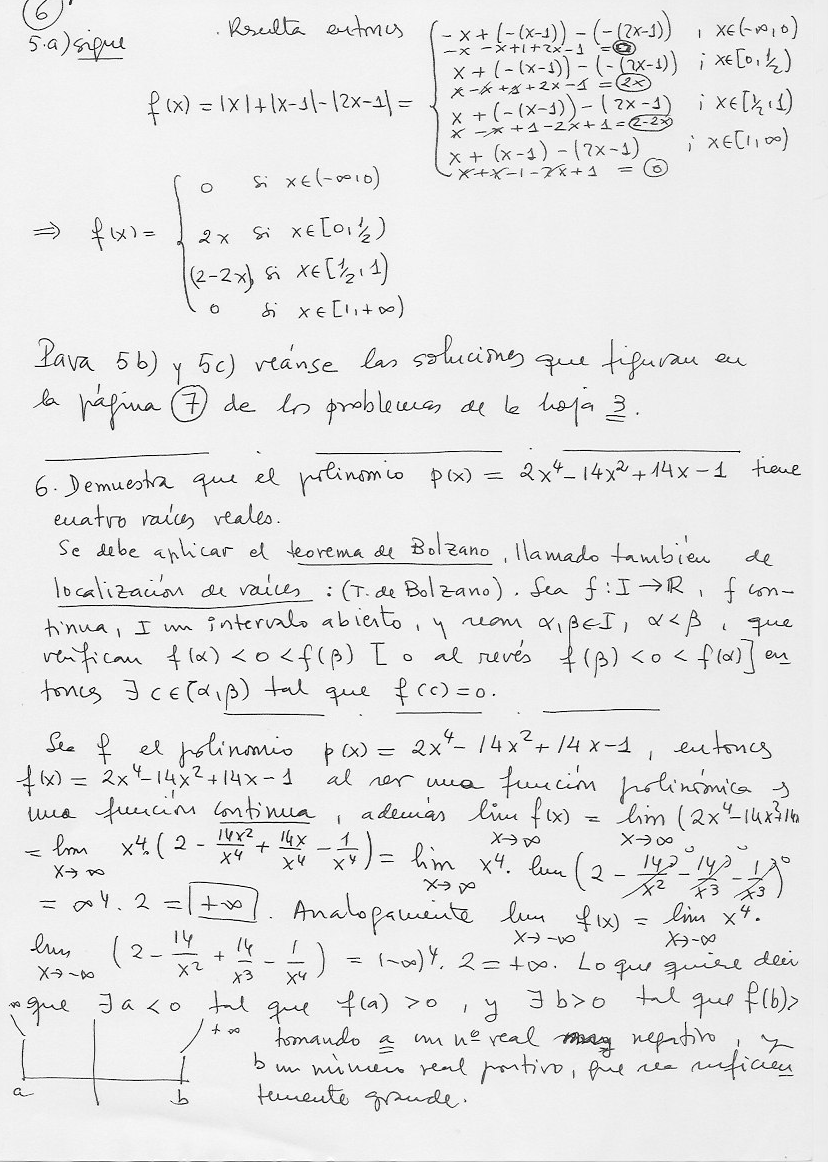 6
5.a) sigue . Resulta entonces
f(x) = |x|+|x-1|-|2x-1| =
-x + (-(x-1)) - (-(2x-1)) , x∈(-∞,0)
-x -x+1+2x-1 = 0
x + (-(x-1)) - (-(2x-1)) ; x∈[0,½)
x -x+1+2x-1 = 2x
x + (-(x-1)) - (2x-1) ; x∈[½,1)
x -x+1-2x+1 = 2-2x
x + (x-1) - (2x-1) ; x∈[1,∞)
x+x-1-2x+1 = 0
⇒ f(x) =
0 si x∈(-∞,0)
2x si x∈[0,½)
(2-2x), si x∈[½,1)
0 si x∈[1,+∞)
Para 5b) y 5c) veánse las soluciones que figuran en
la página 7 de los problemas de la hoja 3.
6. Demuestra que el polinomio p(x) = 2x⁴-14x²+14x-1 tiene
cuatro raíces reales.
Se debe aplicar el teorema de Bolzano, llamado también de
localización de raíces : (T. de Bolzano). Sea f: I→ℝ, f con-
tinua, I un intervalo abierto, y sean α,β∈I, α<β, que
verifican f(α)<0<f(β) [o al revés f(β)<0<f(α)] en
tonces ∃ c∈(α,β) tal que f(c)=0.
Sea f el polinomio p(x) = 2x⁴-14x²+14x-1, entonces
f(x) = 2x⁴-14x²+14x-1 al ser una función polinómica es
una función continua, además lim x→∞ f(x) = lim x→∞ (2x⁴-14x²+14x
= lim x→∞ x⁴.(2 - 14x²/x⁴ + 14x/x⁴ - 1/x⁴) = lim x→∞ x⁴. lim (2 - 14/x² - 14/x³ - 1/x³)
= ∞⁴. 2 = +∞. Analogamente lim x→-∞ f(x) = lim x→-∞ x⁴.
lim x→-∞ (2 - 14/x² + 14/x³ - 1/x⁴) = (-∞)⁴. 2 = +∞. Lo que quiere decir
que ∃ a<0 tal que f(a)>0, y ∃ b>0 tal que f(b)>
∞ +∞ tomando a un nº real negativo, y
b un número real positivo, que sea suficien
a b temente grande.